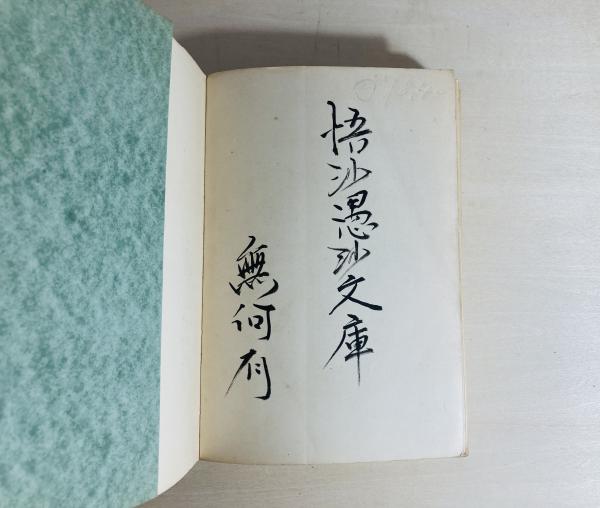 悟沙愚沙文庫
無何有